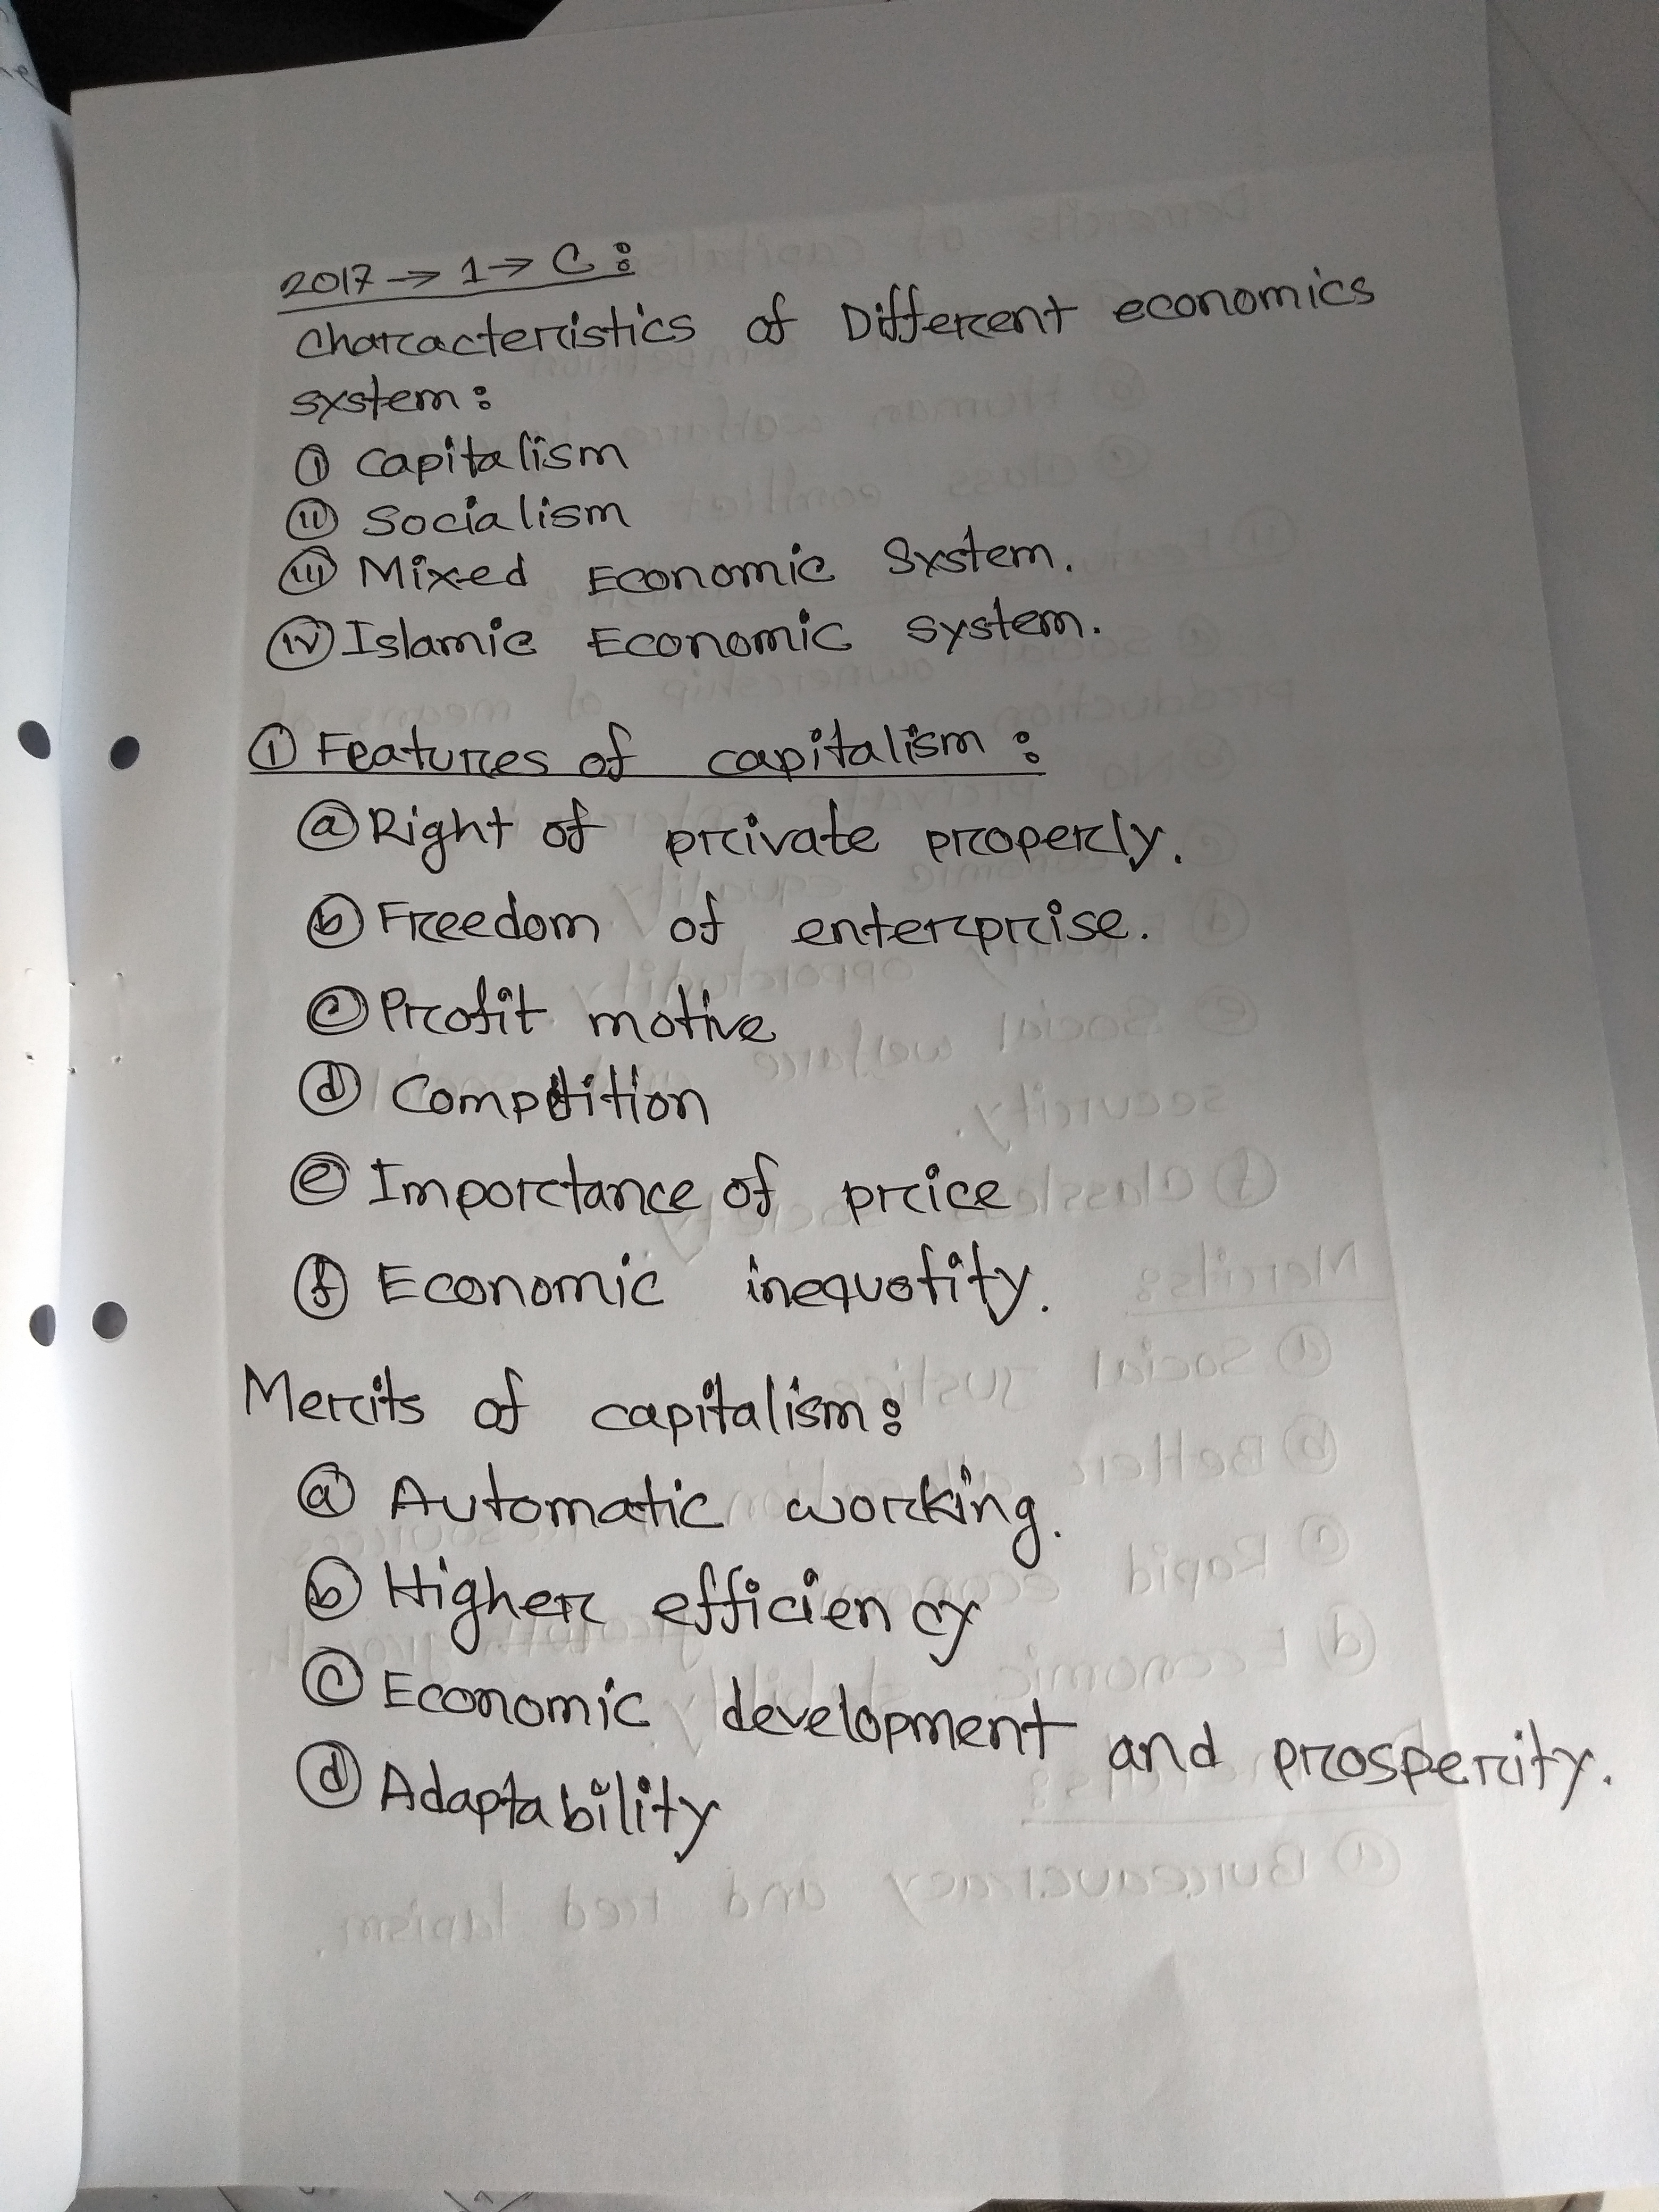 2017 → 1 → C :
Characteristics of Different economics
system :
(i) Capitalism
(ii) Socialism
(iii) Mixed Economic System.
(iv) Islamic Economic system.
(i) Features of capitalism :
(a) Right of private properly.
(b) Freedom of enterprise.
(c) Profit motive
(d) Competition
(e) Importance of price
(f) Economic inequality.
Merits of capitalism :
(a) Automatic working.
(b) Higher efficiency
(c) Economic development and prosperity.
(d) Adaptability